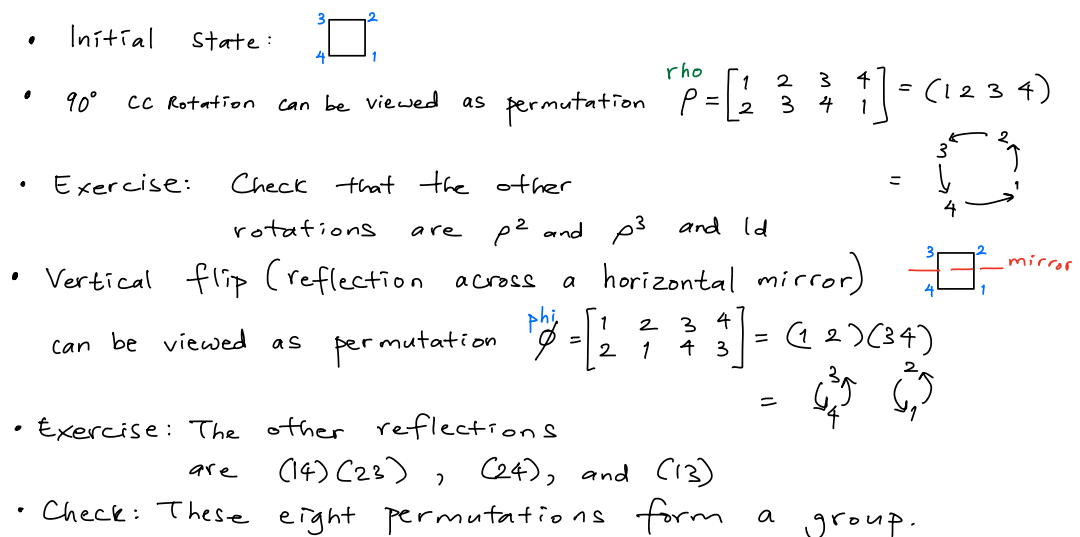 3 2
• Initial state:
4 1
rho
• 90° CC Rotation can be viewed as permutation ρ = [1 2 3 4
2 3 4 1] = (1 2 3 4)
• Exercise: Check that the other
= 3 2 4 1
rotations are ρ² and ρ³ and Id
• Vertical flip (reflection across a horizontal mirror)
3 2 mirror
4 1
phi
can be viewed as permutation ϕ = [1 2 3 4
2 1 4 3] = (1 2)(34)
= 3 4 2 1
• Exercise: The other reflections
are (14)(23), (24), and (13)
• Check: These eight permutations form a group.